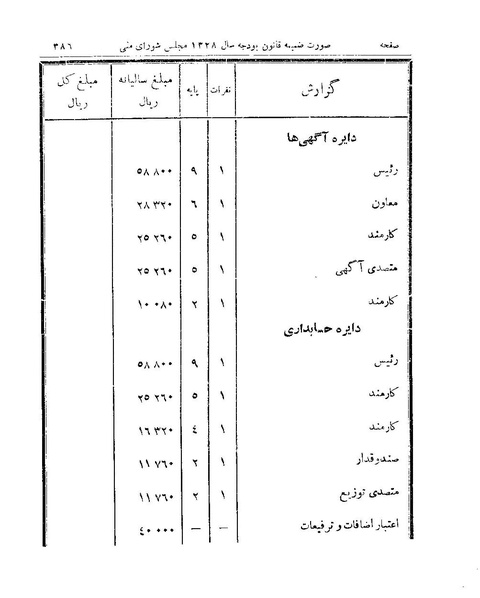 صفحه صورت ضمیمه قانون بودجه سال ۱۳۲۸ مجلس شورای ملی ۳۸۶
گزارش نفرات پایه مبلغ سالیانه ریال مبلغ کل ریال
دایره آگهی‌ها
رئیس ۱ ۹ ۵۸ ۸۰۰
معاون ۱ ۶ ۲۸ ۳۲۰
کارمند ۱ ۵ ۲۵ ۲۶۰
متصدی آگهی ۱ ۵ ۲۵ ۲۶۰
کارمند ۱ ۲ ۱۰ ۰۸۰
دایره حسابداری
رئیس ۱ ۹ ۵۸ ۸۰۰
کارمند ۱ ۵ ۲۵ ۲۶۰
کارمند ۱ ۴ ۱۶ ۳۲۰
صندوقدار ۱ ۲ ۱۱ ۷۶۰
متصدی توزیع ۱ ۲ ۱۱ ۷۶۰
اعتبار اضافات و ترفیعات — — ۴۰ ۰۰۰